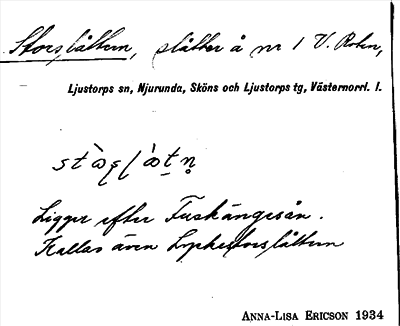 Storslåttern, slåtter å nr 1 V. Rolin,
Ljustorps sn, Njurunda, Sköns och Ljustorps tg, Västernorrl. l.
Ligger efter Tuskängesån.
Kallas även Lyckeforslåttern
ANNA-LISA ERICSON 1934